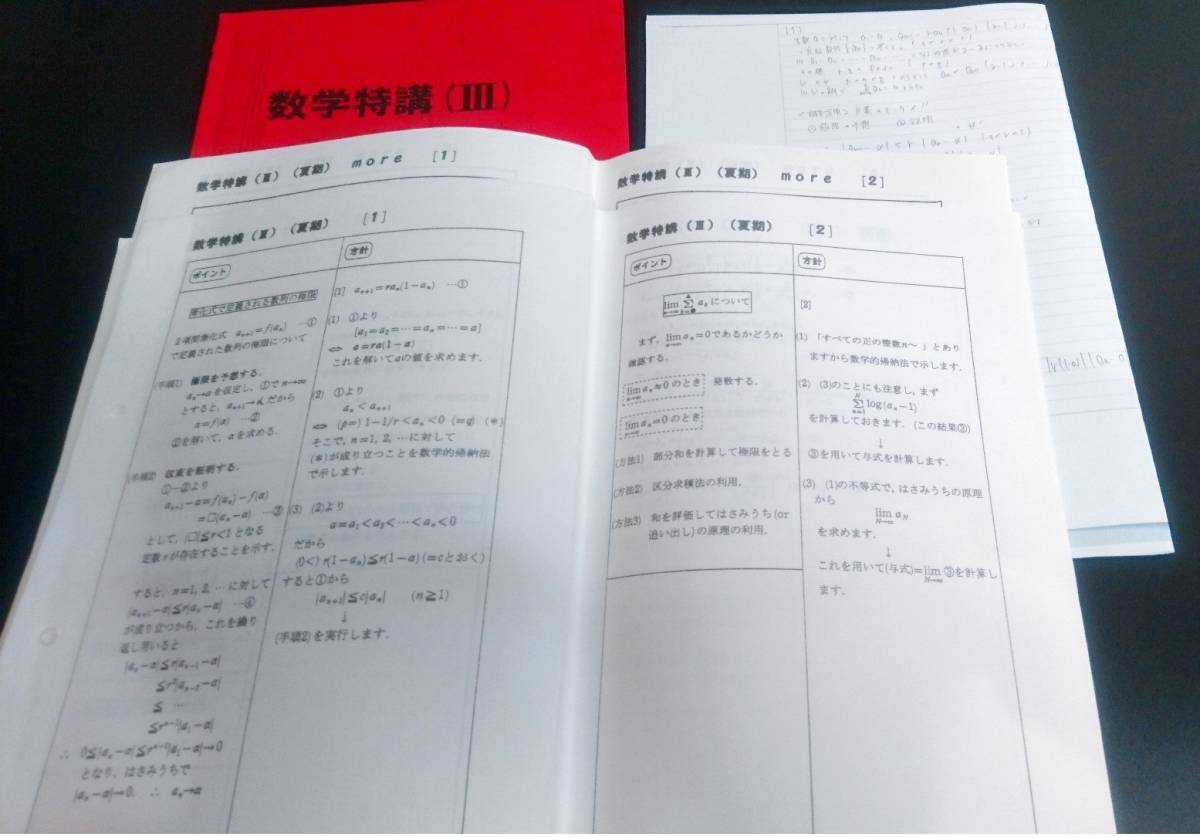 数学特講(III)
[1]
数学特講(Ⅲ)(夏期) more [1]
数学特講(Ⅲ)(夏期) [1]
ポイント
漸化式で定義される数列の極限
2項間漸化式 aₙ₊₁=f(aₙ) …①
で定義された数列の極限について
(手順1) 極限を予想する.
aₙ→αを仮定し,①でn→∞
とすると, aₙ₊₁→αだから
α=f(α) …②
②を解いて, αを求める.
(手順2) 収束を証明する.
①-②より
aₙ₊₁-α=f(aₙ)-f(α)
=□(aₙ-α) …③
として, |□|≦r<1となる
定数rが存在することを示す.
すると, n=1, 2, …に対して
|aₙ₊₁-α|≦r|aₙ-α| …④
が成り立つから, これを繰り
返し用いると
|aₙ-α|≦r|aₙ₋₁-α|
≦r²|aₙ₋₂-α|
≦ …
≦rⁿ⁻¹|a₁-α|
∴ 0≦|aₙ-α|≦rⁿ⁻¹|a₁-α|→0
となり, はさみうちで
|aₙ-α|→0. ∴ aₙ→α
方針
[1] aₙ₊₁=raₙ(1-aₙ) …①
(1) ①より
[a₁=a₂=…=aₙ=…=a]
⇔ a=ra(1-a)
これを解いてaの値を求めます.
(2) ①より
aₙ<aₙ₊₁
⇔ (p=) 1-1/r<aₙ<0 (=q) (*)
そこで, n=1, 2, …に対して
(*)が成り立つことを数学的帰納法
で示します.
(3) (2)より
a=a₁<a₂<…<aₙ<0
だから
(0<) r(1-aₙ)≦r(1-a) (=cとおく)
すると①から
|aₙ₊₁|≦c|aₙ| (n≧1)
↓
(手順2)を実行します.
数学特講(Ⅲ)(夏期) more [2]
数学特講(Ⅲ)(夏期) [2]
ポイント
lim[n→∞] Σ aₖ について
まず, lim[n→∞] aₙ=0であるかどうか
確認する.
lim[n→∞] aₙ≠0のとき 発散する.
lim[n→∞] aₙ=0のとき
(方法1) 部分和を計算して極限をとる
(方法2) 区分求積法の利用.
(方法3) 和を評価してはさみうち(or
追い出し)の原理の利用.
方針
[2]
(1) 「すべての正の整数n〜」とあり
ますから数学的帰納法で示します.
(2) (3)のことにも注意し, まず
Σ[n=1→N] log(aₙ-1)
を計算しておきます. (この結果③)
↓
③を用いて与式を計算します.
(3) (1)の不等式で, はさみうちの原理
から
lim[N→∞] a_N
を求めます.
↓
これを用いて(与式)=lim[N→∞] ③を計算し
ます.